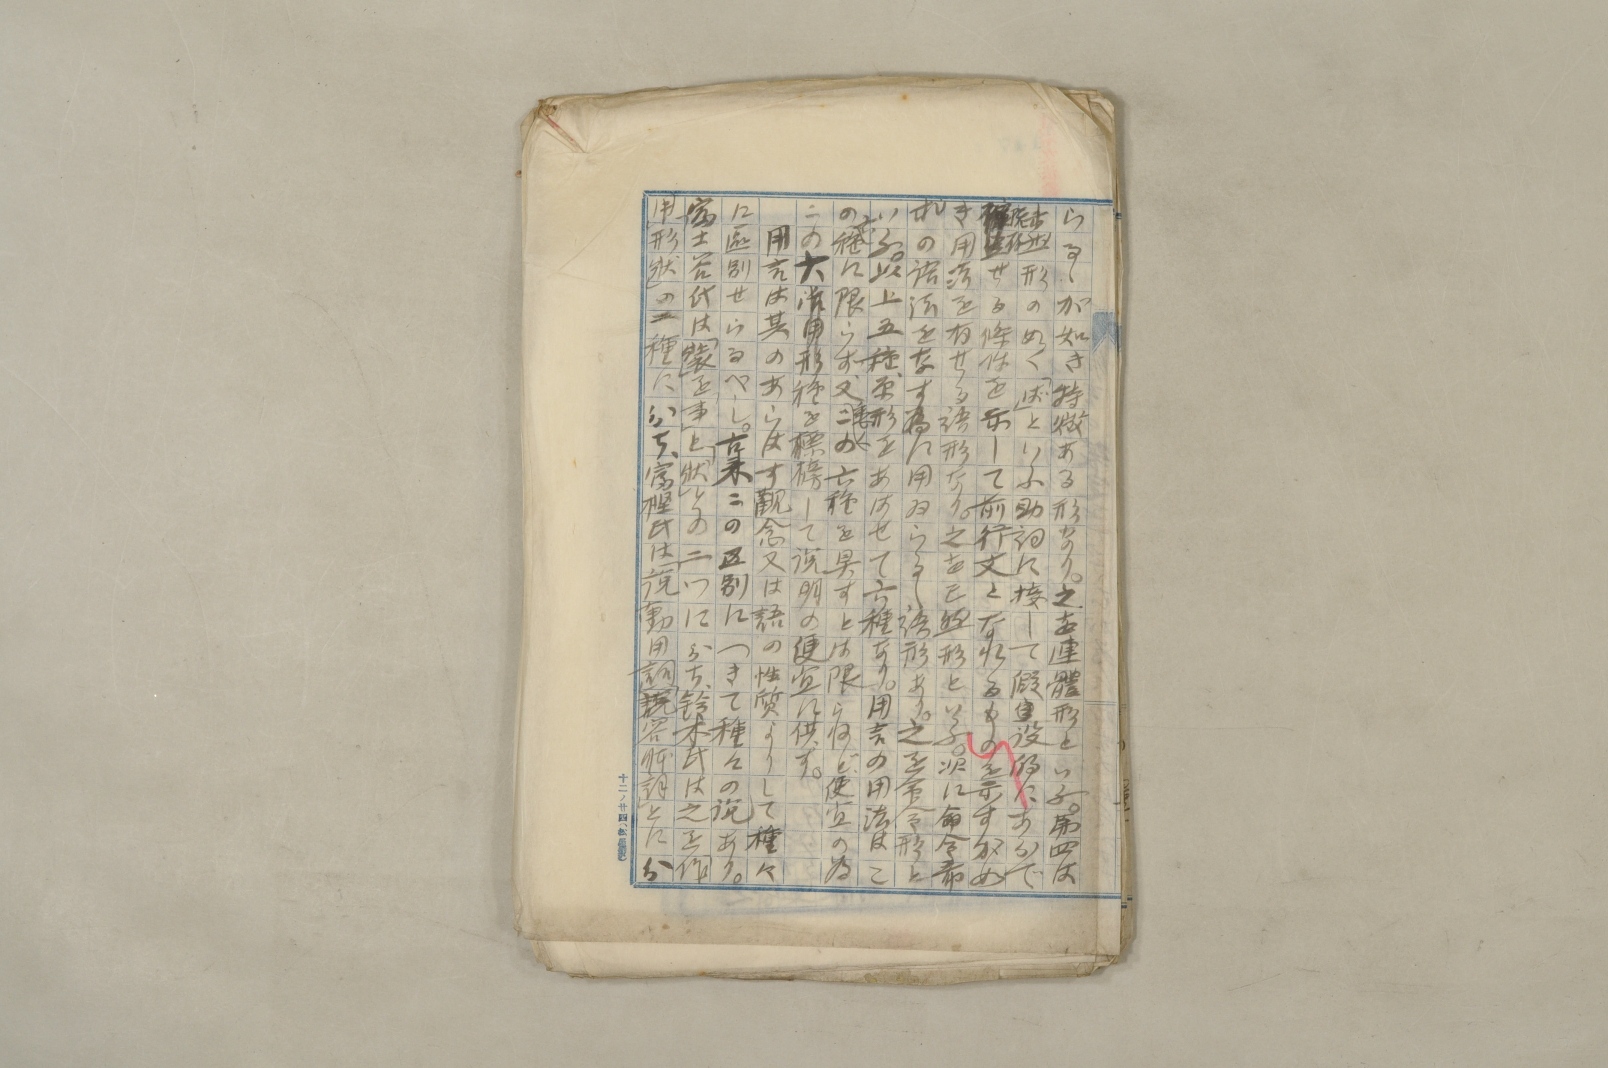 らるゝが如き特徴ある形なり。之を連體形といふ。第四は
形のめく「ば」といふ助詞に接して假設的にあらで
せる條件を示して前行文となれるものを示すがめ
き用法を有せる語形なり。之を已然形といふ。次に命令希
求の語法をなす爲に用ゐらるゝ語形あり。之を命令形と
いふ。以上五種、原形をあはせて六種なり。用言の用法はこ
の六種に限らず又この六種を具すとは限らねど、便宜の為
この六活用形種を標榜して説明の便宜に供す。
用言は其のあらはす觀念又は語の性質よりして種々
に區別せらるべし。古来この区別につきて種々の説あり。
富士谷氏は「装を「事」と「状」との二つに分ち、鈴木氏は之を「作
用「形状」の二種に分ち、富樫氏は「説動用詞「説容体詞」とに分